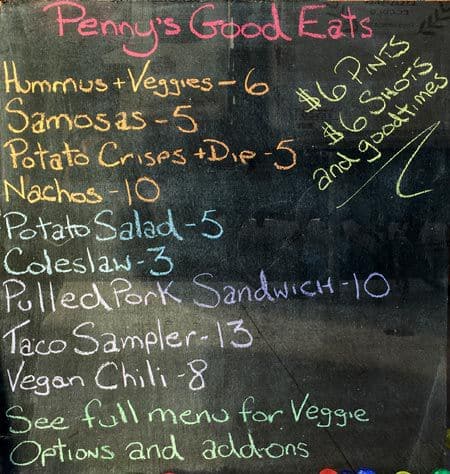 Penny's Good Eats
Hummus + Veggies - 6
Samosas - 5
Potato Crisps + Dip - 5
Nachos - 10
Potato Salad - 5
Coleslaw - 3
Pulled Pork Sandwich - 10
Taco Sampler - 13
Vegan Chili - 8
See full menu for Veggie
Options and add-ons
$6 PINTS
$6 SHOTS
and good times